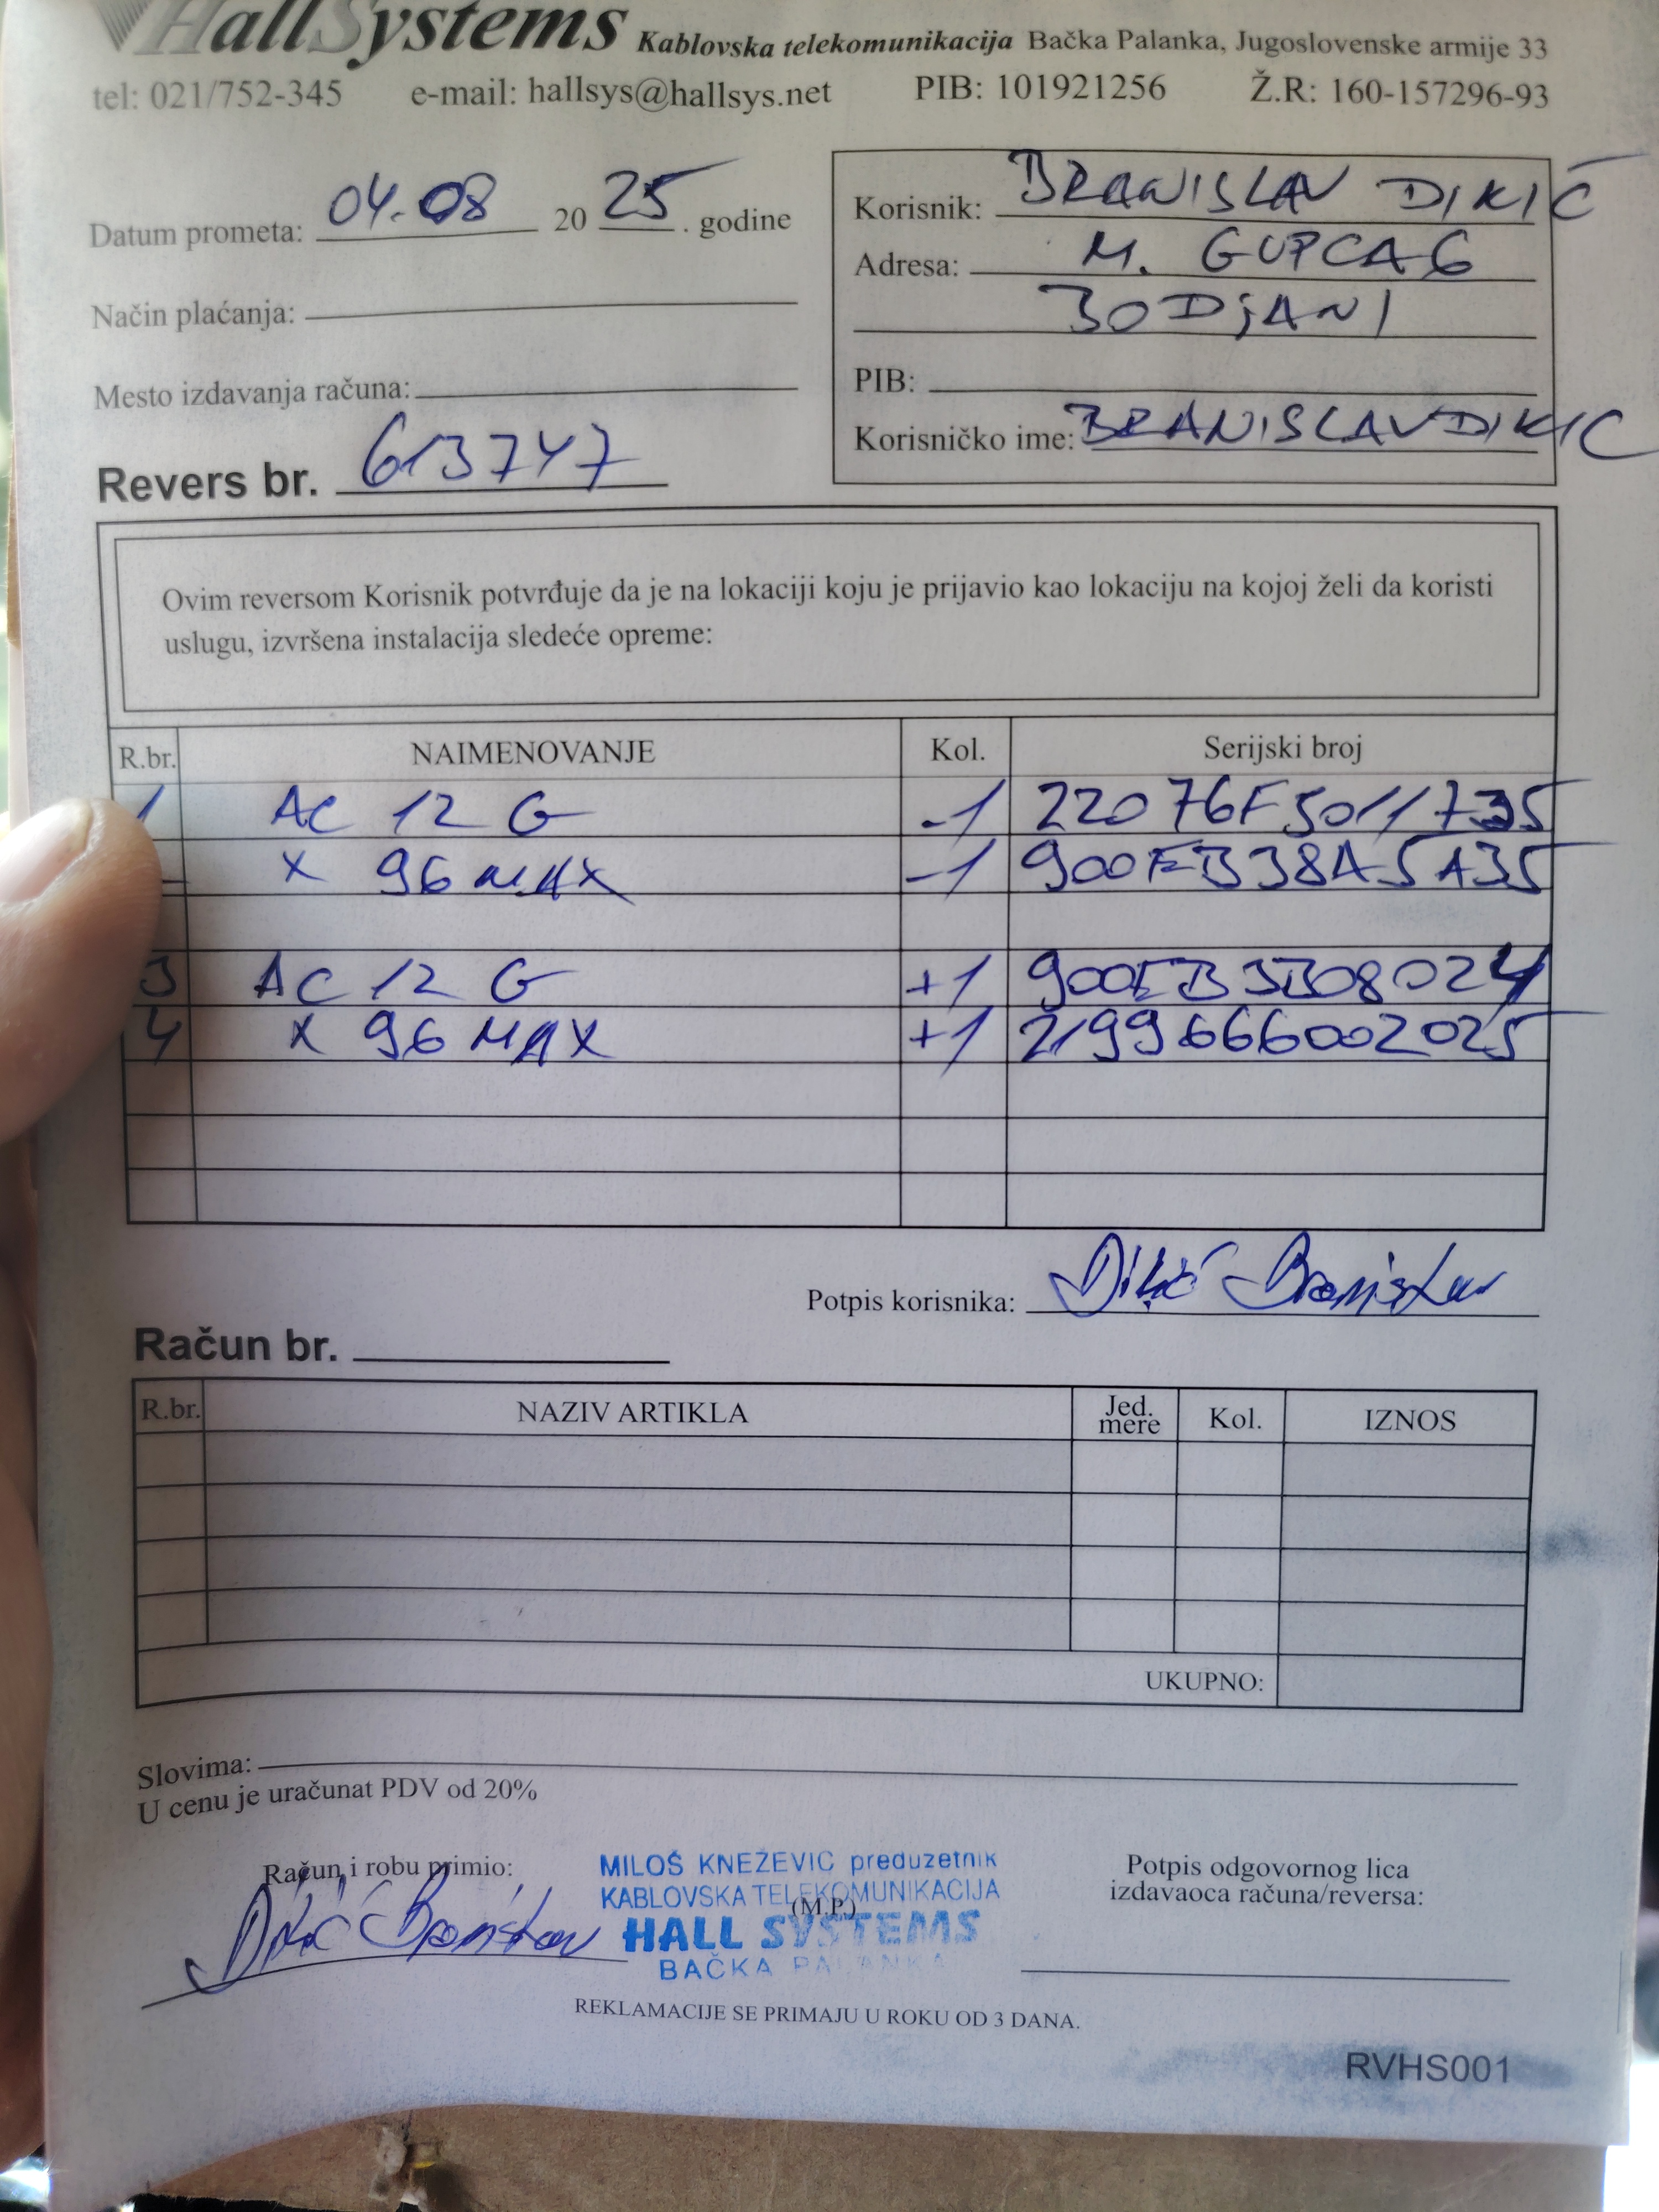 HallSystems Kablovska telekomunikacija Bačka Palanka, Jugoslovenske armije 33
tel: 021/752-345 e-mail: hallsys@hallsys.net PIB: 101921256 Ž.R: 160-157296-93
Datum prometa: 04.08 20 25. godine
Način plaćanja:
Mesto izdavanja računa:
Revers br. 613747
Korisnik: BRANISLAV DIKIĆ
Adresa: M. GUPCA 6
BODjANI
PIB:
Korisničko ime: BRANISLAVDIKIC
Ovim reversom Korisnik potvrđuje da je na lokaciji koju je prijavio kao lokaciju na kojoj želi da koristi
uslugu, izvršena instalacija sledeće opreme:
R.br. NAIMENOVANJE Kol. Serijski broj
1 AC 12 G -1 22076F5011735
X 96 MAX -1 900EB38A5A35
3 AC 12 G +1 900EB3B08024
4 X 96 MAX +1 2199666002025
Potpis korisnika: Dikić Branislav
Račun br.
R.br. NAZIV ARTIKLA Jed. mere Kol. IZNOS
UKUPNO:
Slovima:
U cenu je uračunat PDV od 20%
Račun i robu primio:
Dikić Branislav
MILOŠ KNEŽEVIĆ preduzetnik
KABLOVSKA TELEKOMUNIKACIJA
(M.P.)
HALL SYSTEMS
BAČKA PALANKA
Potpis odgovornog lica
izdavaoca računa/reversa:
REKLAMACIJE SE PRIMAJU U ROKU OD 3 DANA.
RVHS001